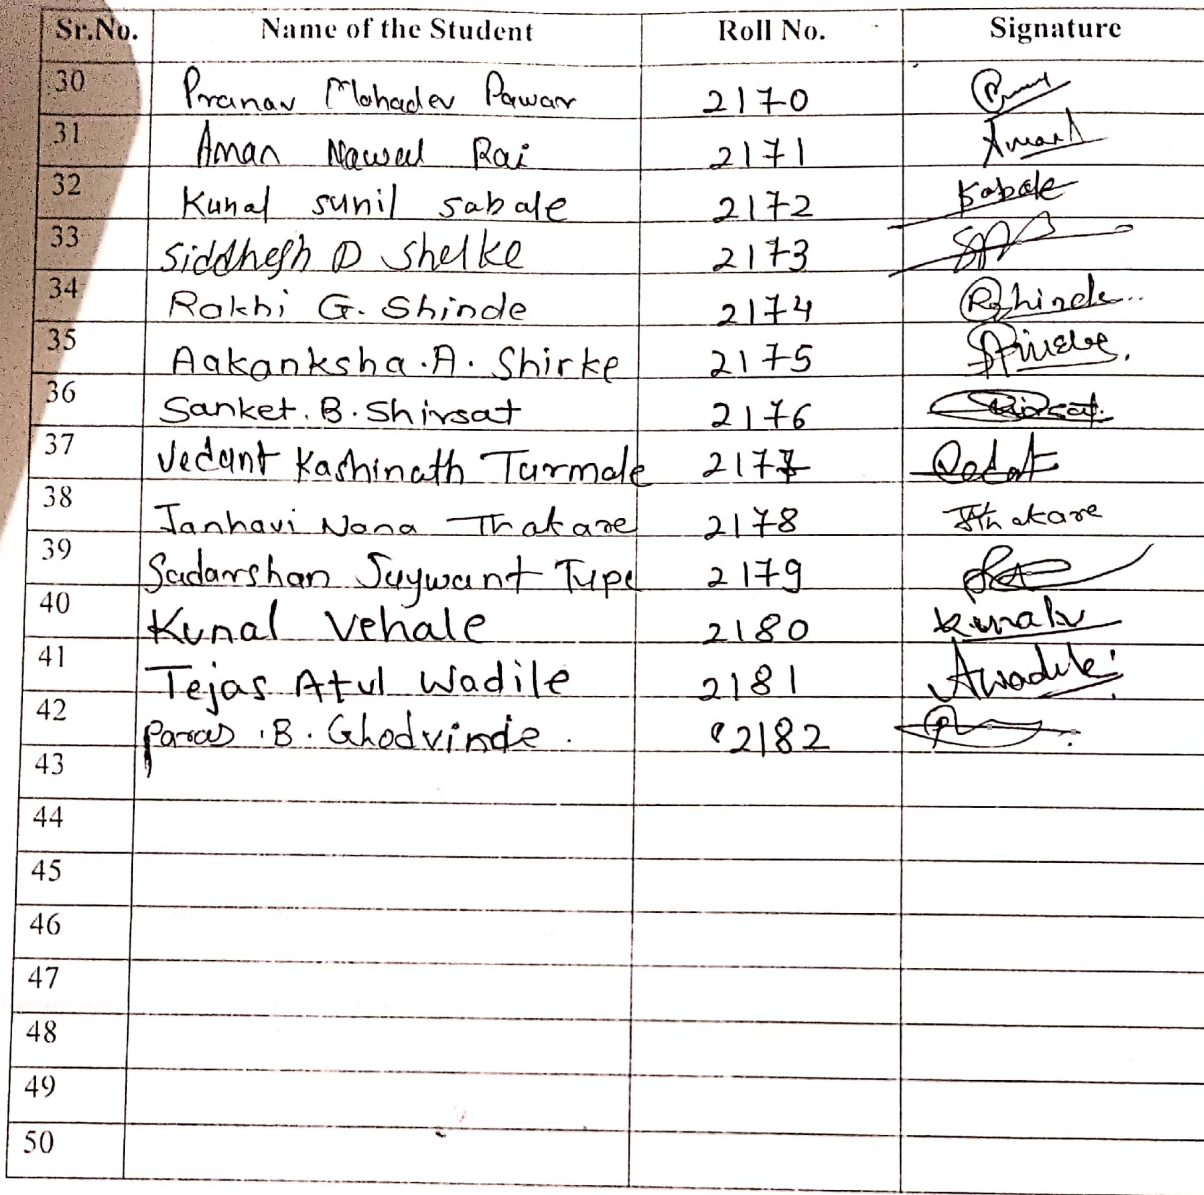 Sr.No. Name of the Student Roll No. Signature
30 Pranav Mahadev Pawar 2170
31 Aman Nawal Rai 2171 Aman
32 Kunal sunil sabale 2172 Sabale
33 Siddhesh D Shelke 2173
34 Rakhi G. Shinde 2174 RShinde..
35 Aakanksha.A. Shirke 2175
36 Sanket.B.Shirsat 2176 Shirsat
37 Vedant Kashinath Turmale 2177 Vedant
38 Janhavi Nana Thakare 2178 JThakare
39 Sadarshan Suywant Tupe 2179
40 Kunal Vehale 2180 Kunalv
41 Tejas Atul Wadile 2181 Awadile
42 Paras .B. Ghodvinde. 2182
43
44
45
46
47
48
49
50